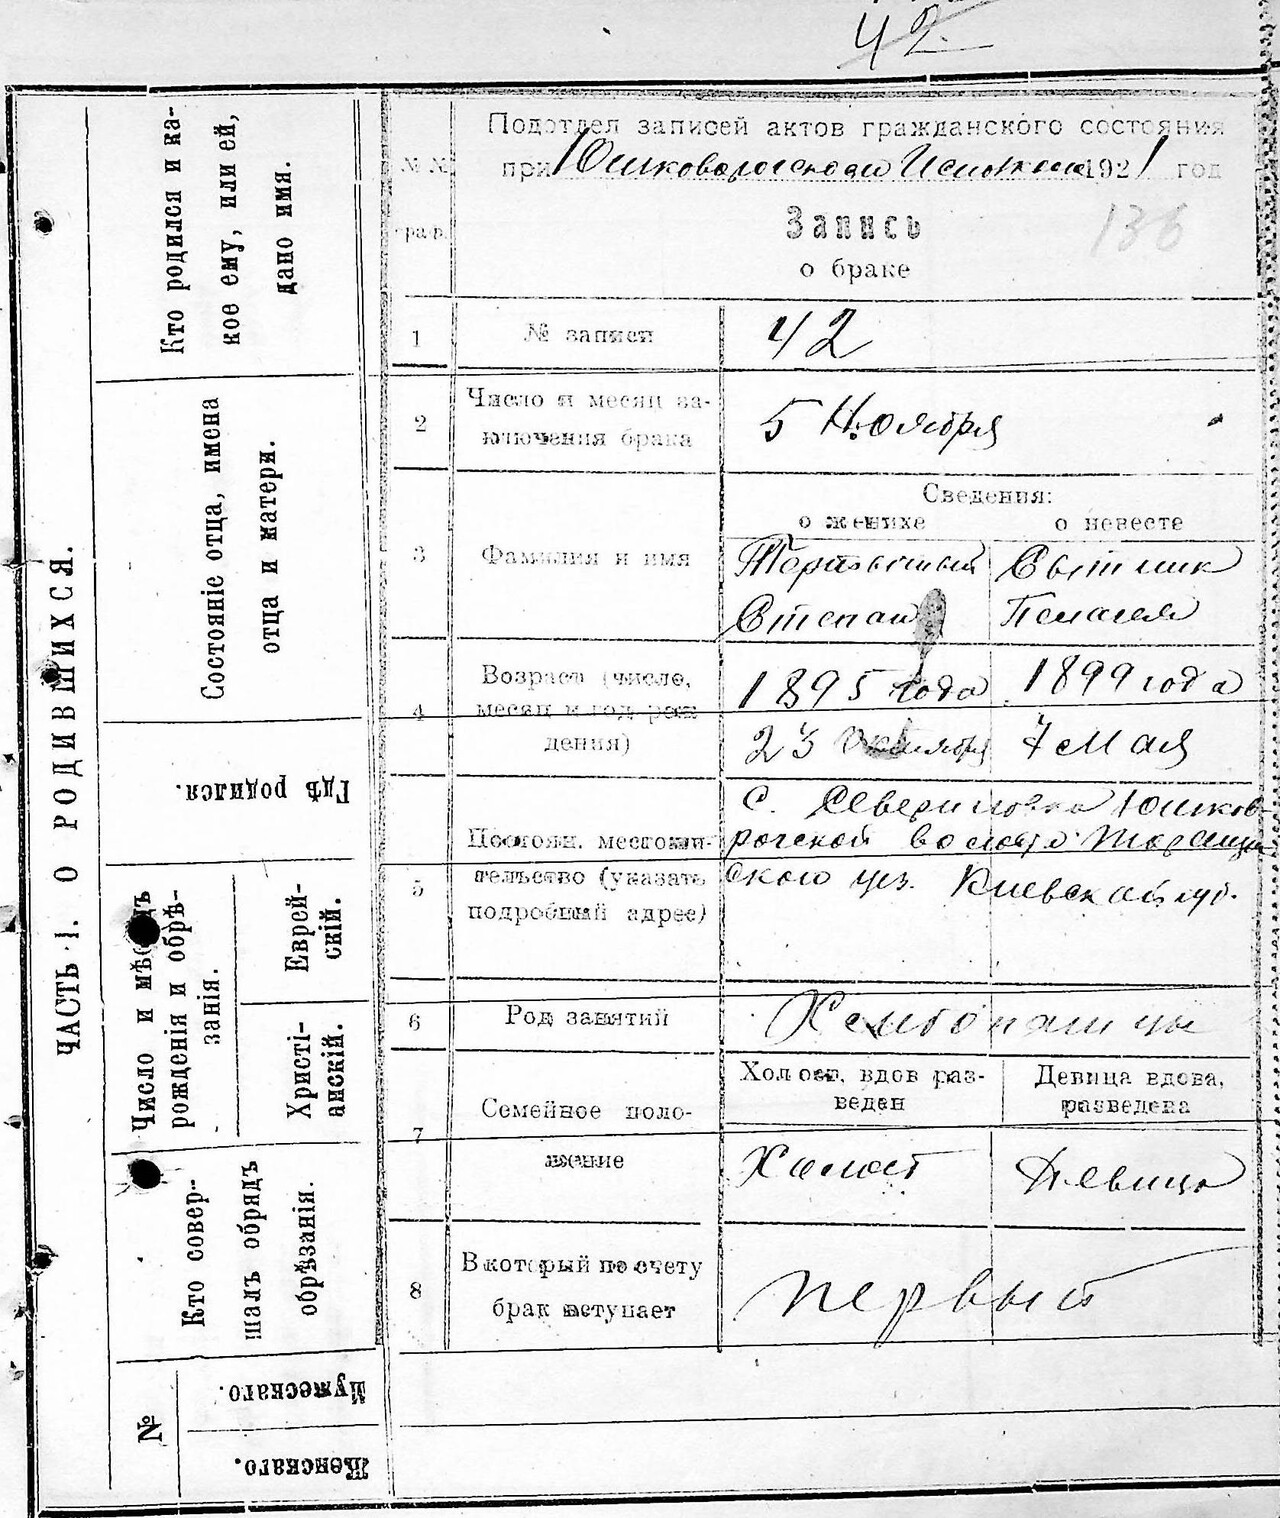 42
ЧАСТЬ 1. О РОДИВШИХСЯ.
Кто родился и ка-
кое ему, или ей,
дано имя.
Состояніе отца, имена
отца и матери.
Гдѣ родился.
Число и мѣсяцъ
рожденія и обрѣ-
занія.
Еврей-
скій.
Христі-
анскій.
Кто совер-
шалъ обрядъ
обрѣзанія.
№
Мужескаго.
Женскаго.
Подотдел записей актов гражданского состояния
при 1921 год
№№
граф.
Запись
136
о браке
1
№ записи
42
2
Число и месяц за-
ключения брака
5 Ноября
Сведения:
о женихе
о невесте
3
Фамилия и имя
Сытник
Степан
Пелагея
4
Возраст (число,
месяц и год рож
дения)
1895 года
1899 года
23 Октября
7 Мая
5
Постоян. местожи-
тельство (указать
подробный адрес)
с. Севериновка Юшков-
рогской волости Таращан
ского уез. Киевской губ.
6
Род занятий
Хлебопашцы
7
Семейное поло-
жение
Холост, вдов раз-
веден
Девица вдова,
разведена
Холост
Девица
8
В который по счету
брак вступает
первый